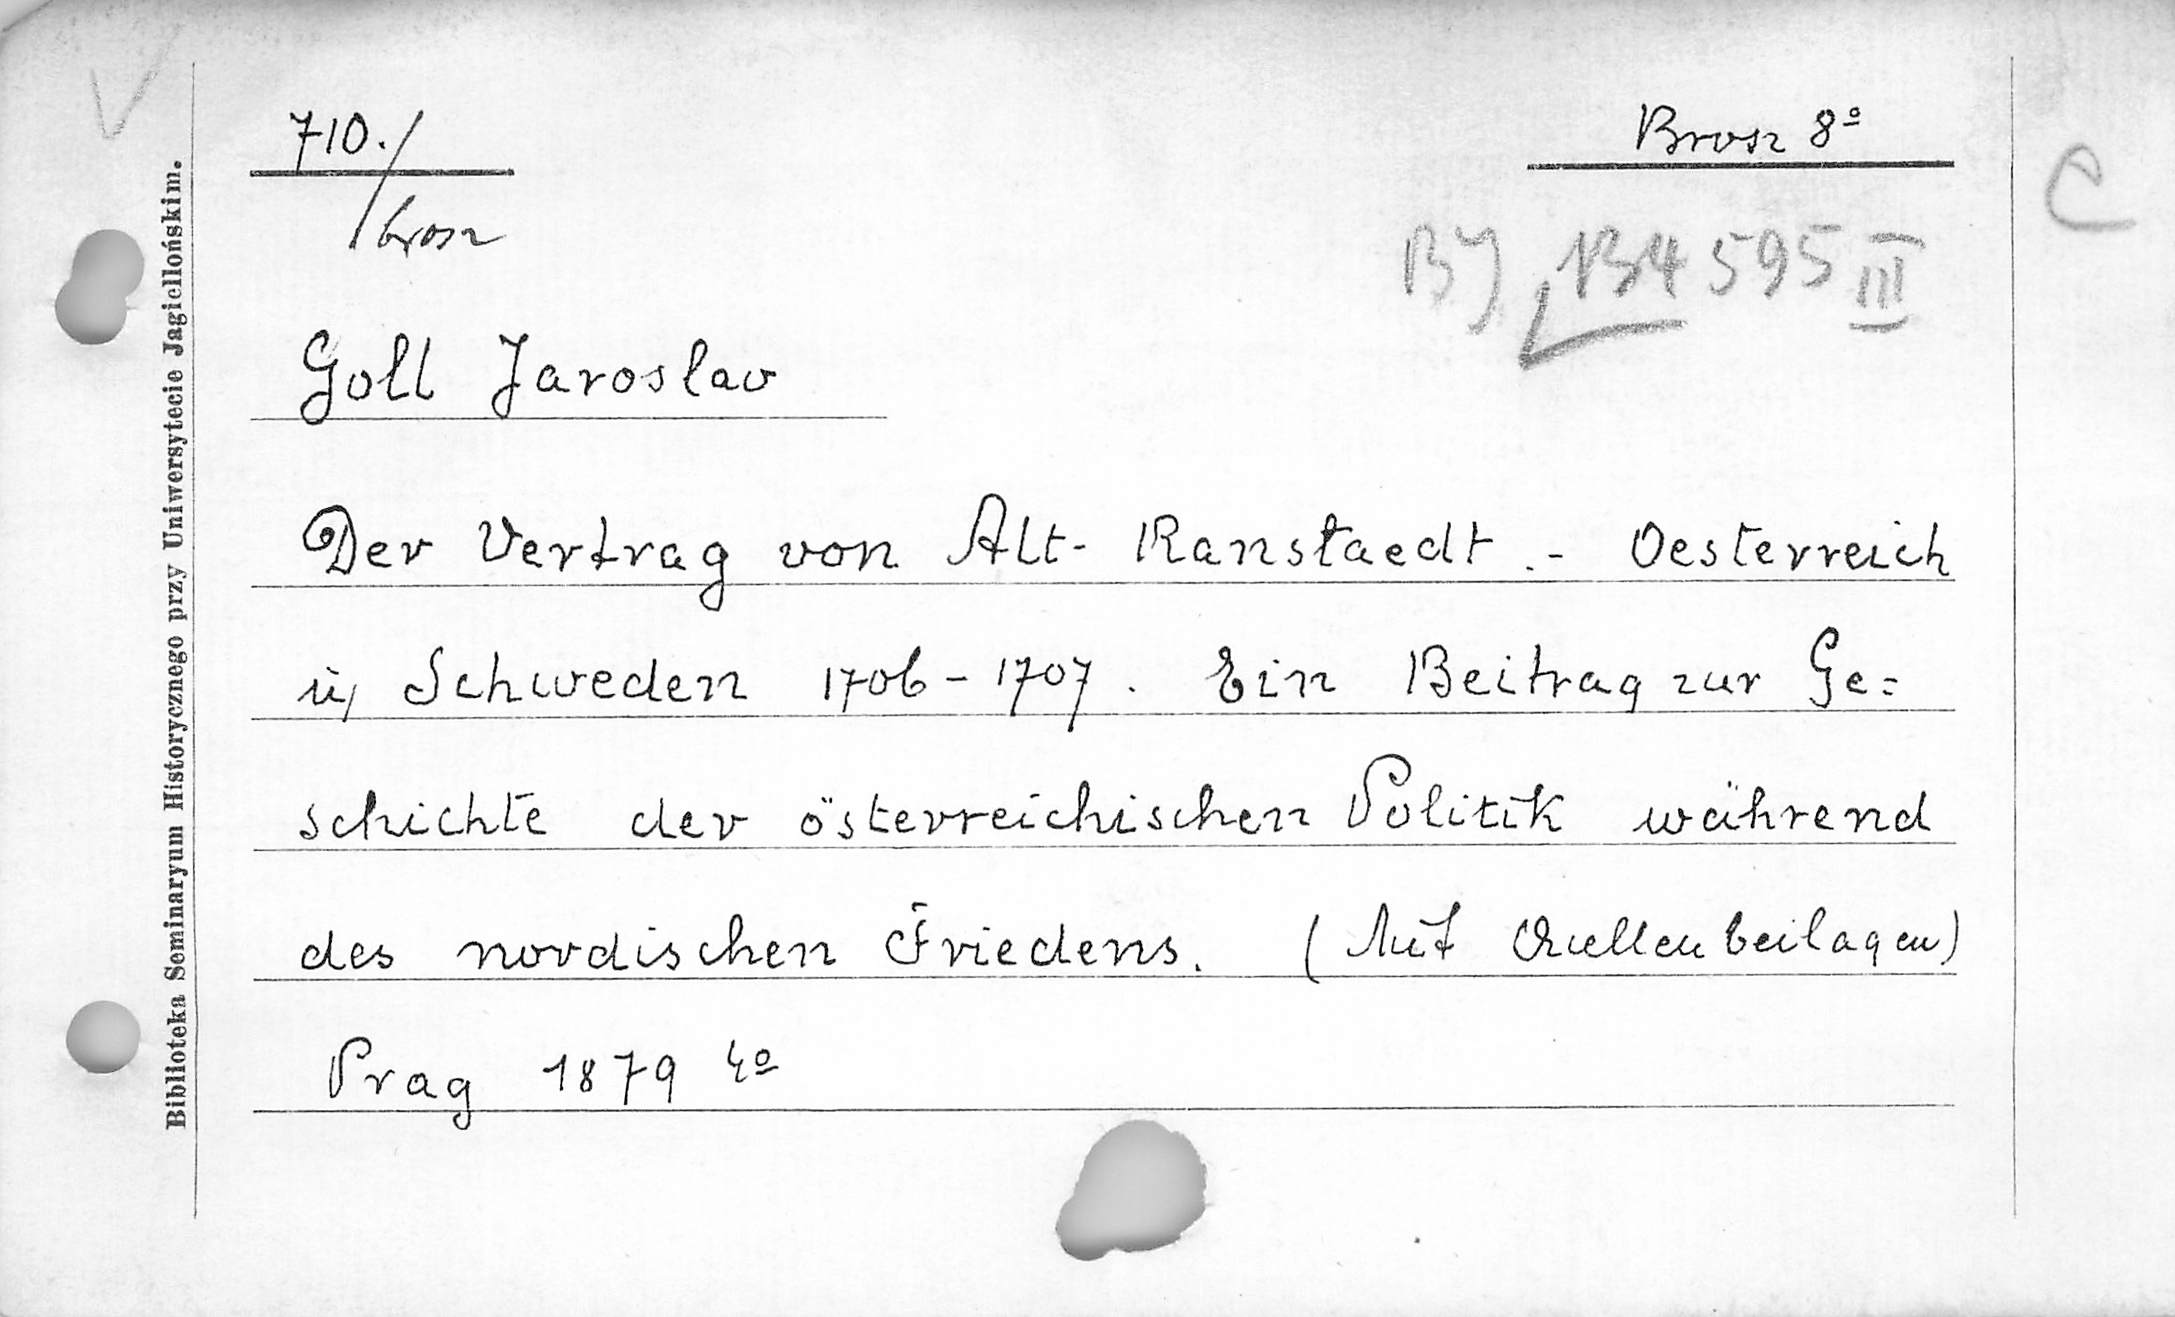 V
710./
brosz
Brosz 8º
C
BJ 134595 III
Goll Jaroslav
Der Vertrag von Alt-Ranstaedt.- Oesterreich
u, Schweden 1706-1707. Ein Beitrag zur Ge=
schichte der österreichischen Politik während
des nordischen Friedens. (Mit Quellenbeilagen)
Prag 1879 4º
Biblioteka Seminaryum Historycznego przy Uniwersytecie Jagiellońskim.